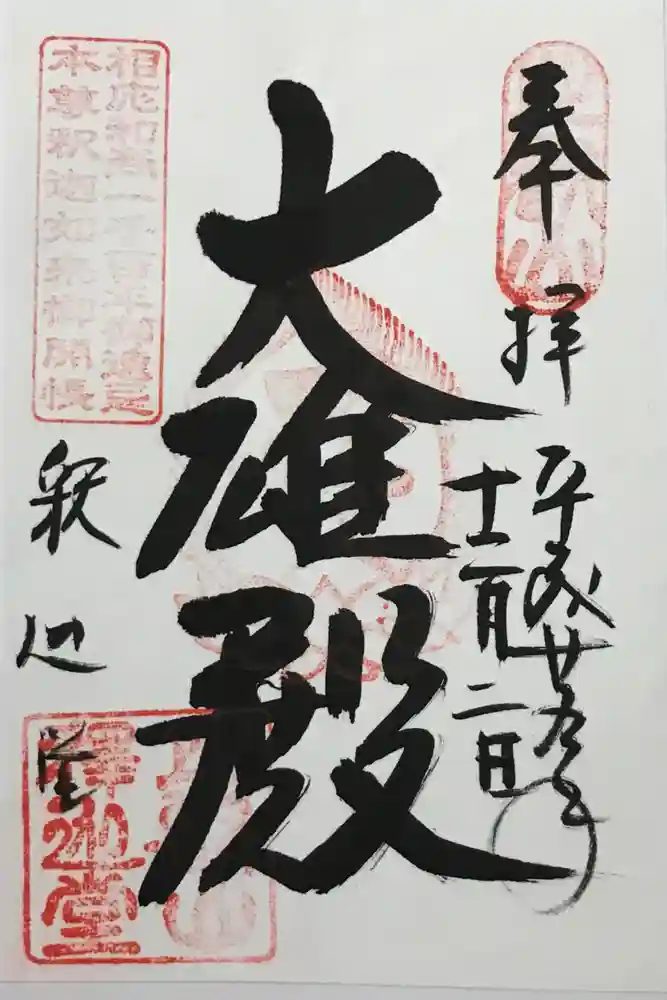 奉拝
平成廿九年
十一月二日
大雄殿
相応和尚一千百年御遠忌
本尊釈迦如来御開帳
釈迦堂
釋迦堂